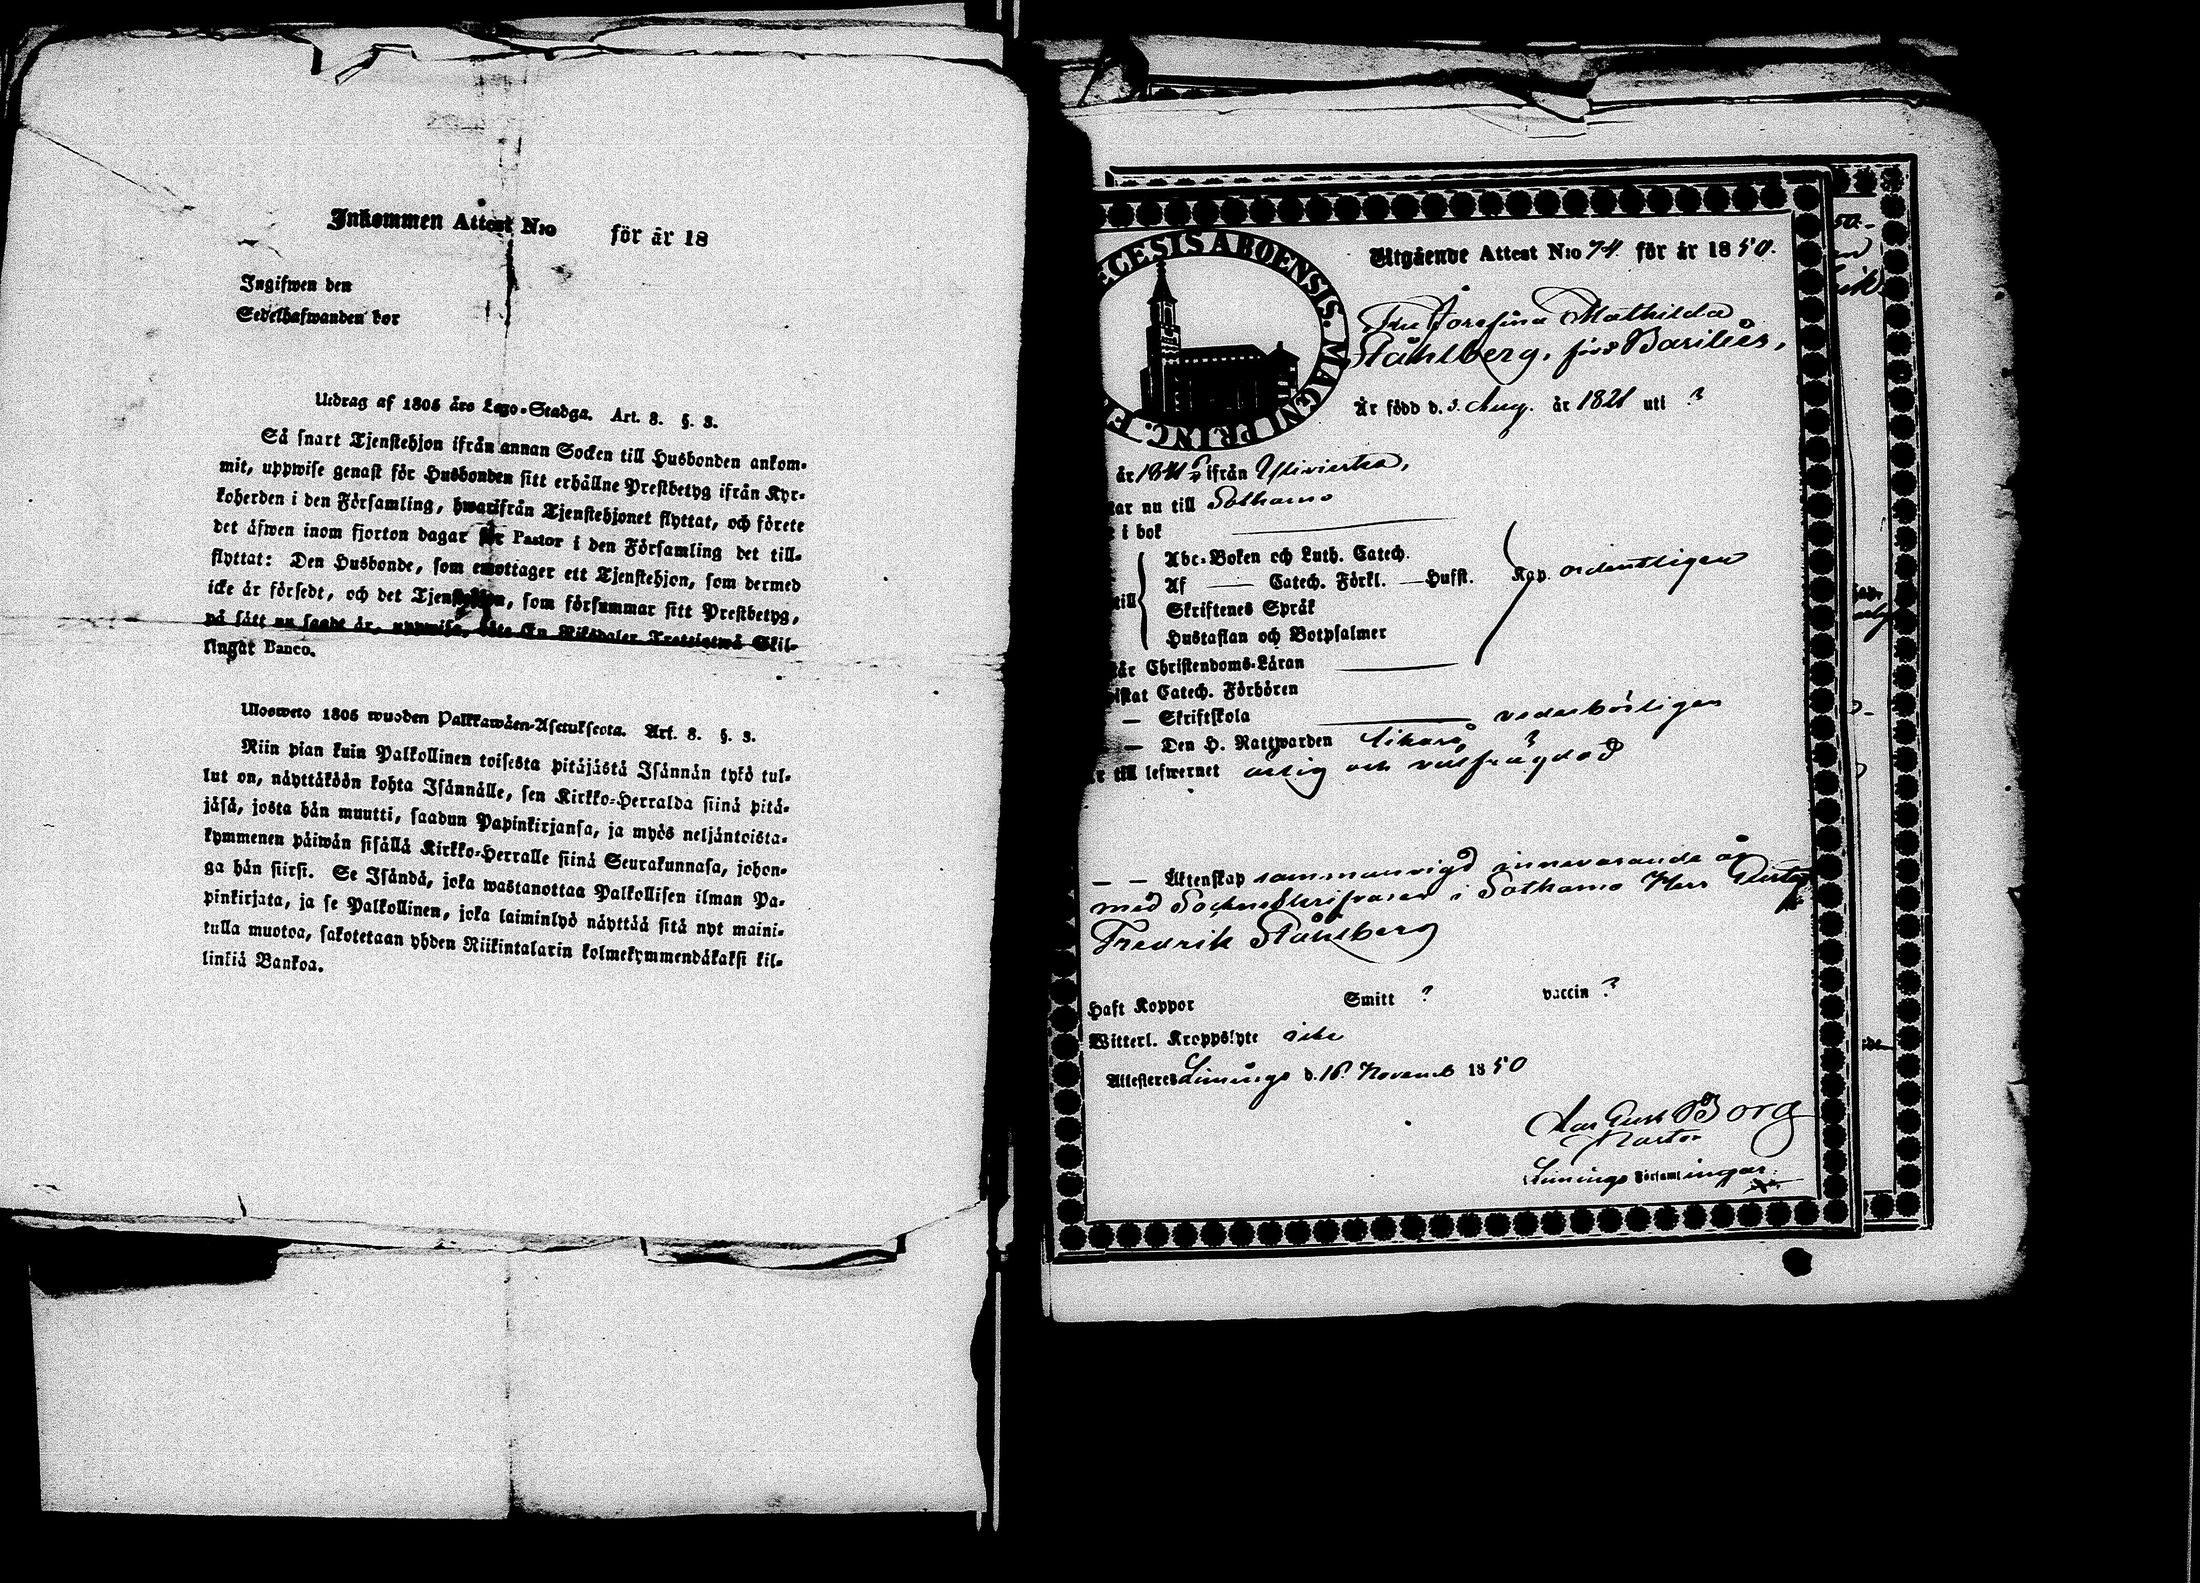 Inkommen Attest N:o för år 18
Ingifwen den
Sedelhafwanden bor
Utdrag af 1805 års Lego-Stadga. Art. 8. §. 3.
Så snart Tjenstehjon ifrån annan Socken till Husbonden ankom-
mit, uppwise genast för Husbonden sitt erhållne Prestbetyg ifrån Kyr-
koherden i den Församling, hwarifrån Tjenstehjonet flyttat, och förete
det äfwen inom fjorton dagar för Pastor i den Församling det till-
flyttat: Den Husbonde, som emottager ett Tjenstehjon, som dermed
icke är försedt, och det Tjenstehjon, som försummar sitt Prestbetyg,
på sått nu sagdt är, uppwisa, böte En Riksdaler Trettiotwå Skil-
lingat Banco.
Ulosweto 1805 wuoden Palkkawäen-Asetuksesta. Art. 8. §. 3.
Niin pian kuin Palkollinen toisesta pitäjästä Isännän tykö tul-
lut on, näyttäköön kohta Isännälle, sen Kirkko-Herralda siinä pitä-
jäsä, josta hän muutti, saadun Papinkirjansa, ja myös neljäntoista-
kymmenen päiwän sisällä Kirkko-Herralle siinä Seurakunnasa, johon-
ga hän siirsi. Se Isändä, joka wastanottaa Palkollisen ilman Pa-
pinkirjata, ja se Palkollinen, joka laiminlyö näyttää sitä nyt maini-
tulla muotoa, sakotetaan yhden Riikintalarin kolmekymmendäkaksi kil-
linkiä Bankoa.
ECESIS ABOENSIS. MAGNI PRINC. F
Utgående Attest N:o 74. för år 1850.
Fru Josefina Mathilda
Ståhlberg, född Basilier,
Är född d. 3. Aug. år 1821 uti ?
år 1841 ifrån Ylivieska,
tar nu till Sotkamo
i bok
till Abc-Boken och Luth. Catech.
Af — Catech. Förkl. — Husst. Kap. ordentligen
Skriftenes Språk
Hustaflan och Botpsalmer
står Christendoms-Läran
istat Catech. Förhören
— Skriftskola vederbörligen
— Den H. Nattwarden likaså
r till lefwernet ärlig och välfrägdad
— — Äktenskap sammanvigd innevarande år
med Sockneskrifvaren i Sotkamo Herr
Fredrik Ståhlberg
Haft Koppor Smitt ? vaccin ?
Witterl. Kroppslyte icke
Attesteres Limingo d. 16. Novemb 1850
Borg
Pastor
Limingo Församlingar.